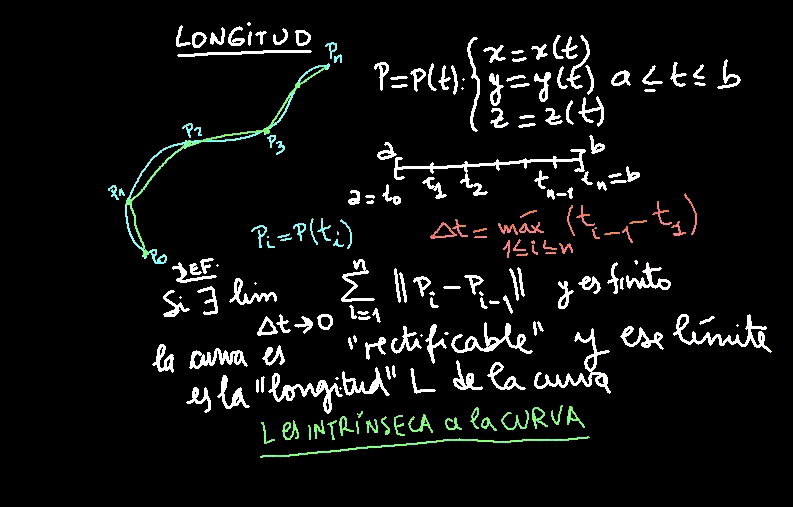 LONGITUD
Pn
P2
P3
P1
P0
P=P(t): { x=x(t)
y=y(t) a ≤ t ≤ b
z=z(t)
a b
a=t₀ t₁ t₂ tₙ₋₁ tₙ=b
Pᵢ=P(tᵢ) Δt= máx (tᵢ₋₁-t₁)
1≤i≤n
DEF.
Si ∃ lim ∑ ‖Pᵢ-Pᵢ₋₁‖ y es finito
Δt→0 i=1 n
la curva es "rectificable" y ese límite
es la "longitud" L de la curva
L es INTRÍNSECA a la CURVA